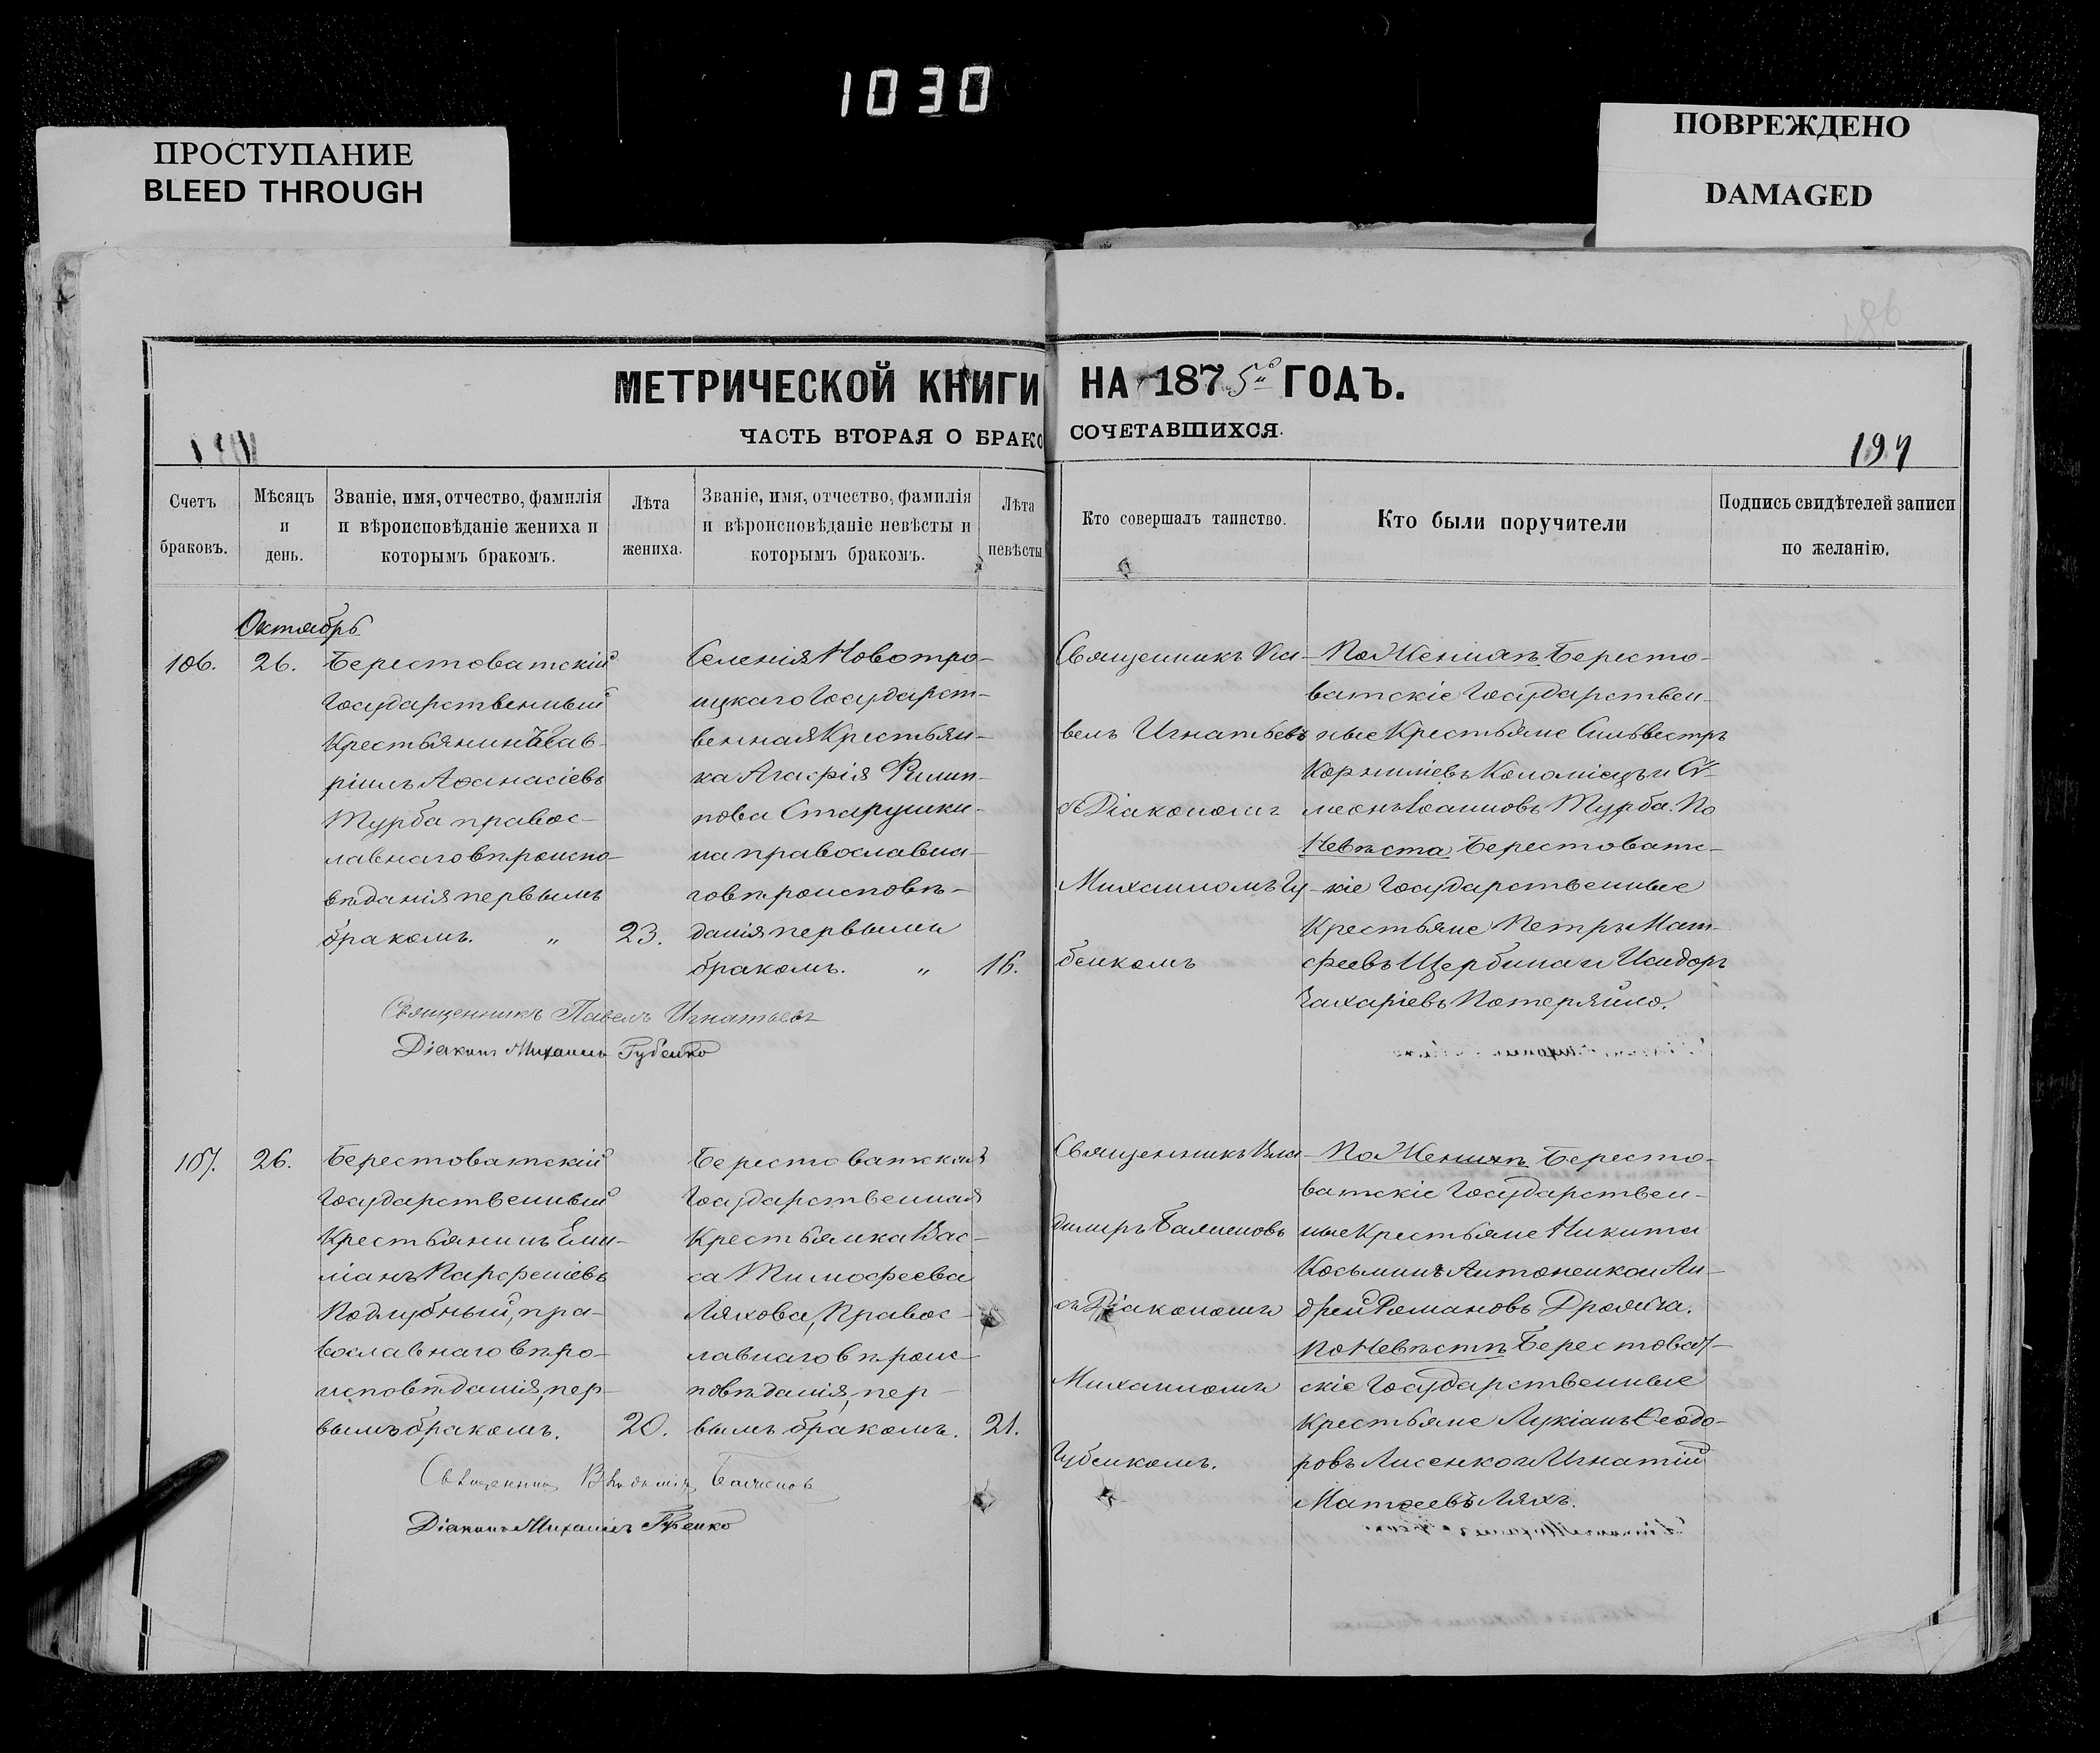 1030
ПРОСТУПАНИЕ
BLEED THROUGH
ПОВРЕЖДЕНО
DAMAGED
МЕТРИЧЕСКОЙ КНИГИ НА 1875й ГОДЪ.
ЧАСТЬ ВТОРАЯ О БРАКОСОЧЕТАВШИХСЯ.
194
Счетъ
браковъ.
Мѣсяцъ
и
день.
Званіе, имя, отчество, фамилія
и вѣроисповѣданіе жениха и
которымъ бракомъ.
Лѣта
жениха.
Званіе, имя, отчество, фамилія
и вѣроисповѣданіе невѣсты и
которымъ бракомъ.
Лѣта
невѣсты
Кто совершалъ таинство.
Кто были поручители
Подпись свидѣтелей записи
по желанію.
Октябрь
106.
26.
Берестоватскій
Государственный
Крестьянинъ Гав-
ріилъ Аѳанасіевъ
Турба правос-
лавнаго вѣроиспо-
вѣданія первымъ
бракомъ. "
23.
Селенія Новотро-
ицкаго Государст-
венная Крестьян-
ка Агафія Филип-
пова Старушки-
на православна-
го вѣроисповѣ-
данія первымъ
бракомъ. "
16.
Священникъ Па-
велъ Игнатьевъ
съ Діакономъ
Михаиломъ Гу-
бенкомъ
По Женихѣ Бересто-
ватскіе Государствен-
ные Крестьяне Сильвестръ
Корниліевъ Коломіецъ и Си-
меонъ Іоанновъ Турба. По
Невѣста Берестоватс-
кіе Государственные
Крестьяне Петръ Мат-
феевъ Щербина и Исидоръ
Захаріевъ Потеряйло.
Священникъ Павелъ Игнатьевъ
Діаконъ Михаилъ Губенко
107.
26.
Берестоватскій
Государственный
Крестьянинъ Еми-
ліанъ Парфеніевъ
Поддубный, пра-
вославнаго вѣро-
исповѣданія, пер-
вымъ бракомъ.
20.
Берестоватская
Государственная
Крестьянка Вас-
са Тимофеева
Ляхова, Правос-
лавнаго вѣроис-
повѣданія, пер-
вымъ бракомъ.
21.
Священникъ Вла-
димиръ Балясновъ
съ Діакономъ
Михаиломъ
Губенкомъ.
По Женихѣ Бересто-
ватскіе Государствен-
ные Крестьяне Никита
Косьминъ Антоненко и Ан-
дрей Романовъ
По Невѣстѣ Берестоват-
скіе Государственные
Крестьяне Лукіанъ Ѳеодо-
ровъ Лисенко и Игнатій
Матѳеевъ Ляхъ.
Священникъ Владиміръ
Діаконъ Михаилъ Губенко